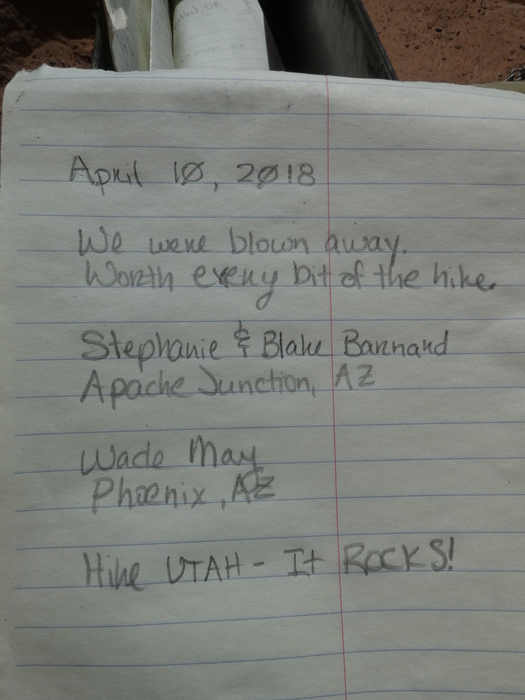 April 10, 2018
We were blown away.
Worth every bit of the hike.
Stephanie & Blake Barnard
Apache Junction, AZ
Wade May
Phoenix, AZ
Hike UTAH - It ROCKS!